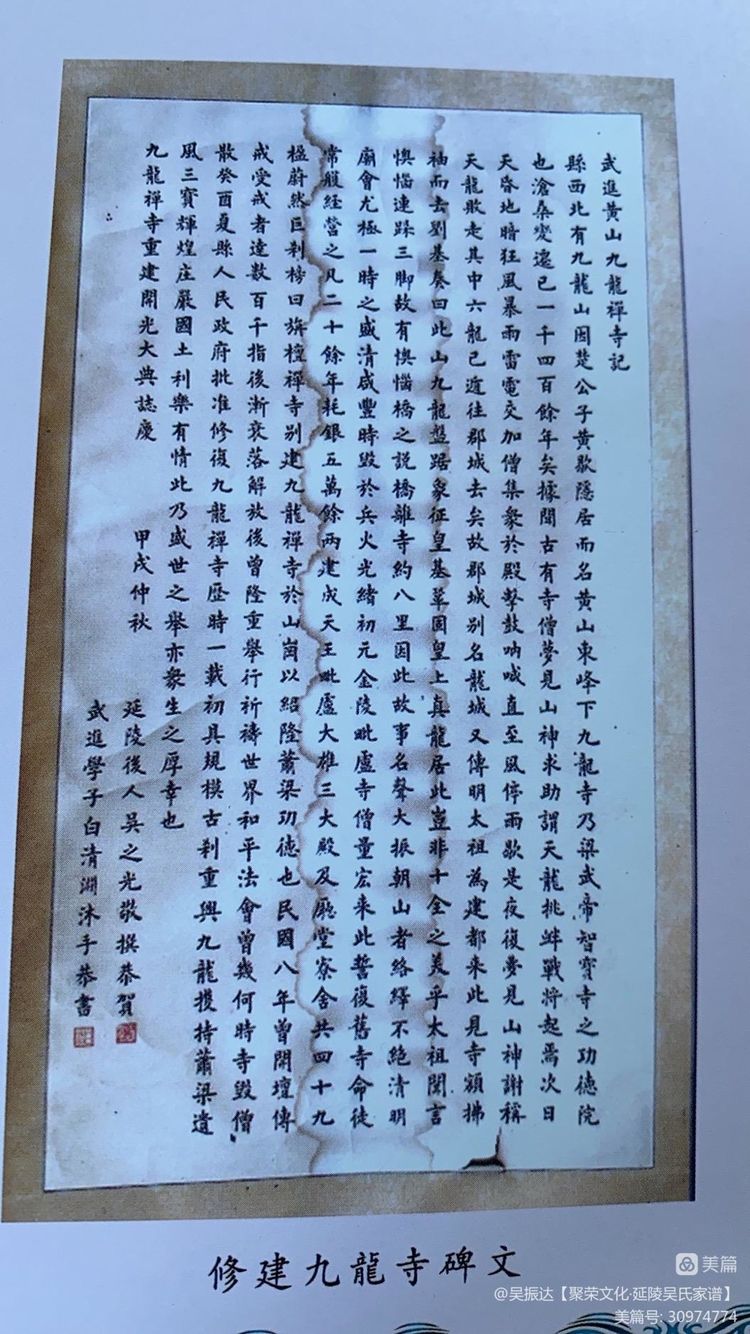 武進黃山九龍禪寺記
縣西北有九龍山因楚公子黃歇隱居而名黃山東峰下九龍寺乃梁武帝智寶寺之功德院
也滄桑變遷已一千四百餘年矣據聞古有寺僧夢見山神求助謂天龍挑衅戰將起焉次日
天昏地暗狂風暴雨雷電交加僧集衆於殿擊鼓吶喊直至風停雨歇是夜復夢見山神謝稱
天龍敗走其中六龍已遁往郡城去矣故郡城别名龍城又傳明太祖為建都來此見寺額拂
袖而去劉基奏曰此山九龍盤踞象征皇基鞏固皇上真龍居此豈非十全之美乎太祖聞言
懊惱連跺三脚故有懊惱橋之説橋離寺約八里因此故事名聲大振朝山者絡繹不絶清明
廟會尤極一時之盛清咸豐時毀於兵火光緒初元金陵毗盧寺僧量宏來此誓復舊寺命徒
常履經營之凡二十餘年耗銀五萬餘兩建成天王毗盧大雄三大殿及廳堂寮舍共四十九
楹蔚然巨刹榜曰旃檀禪寺别建九龍禪寺於山崗以紹隆蕭梁功德也民國八年曾開壇傳
戒受戒者達數百千指後漸衰落解放後曾隆重舉行祈禱世界和平法會曾幾何時寺毀僧
散癸酉夏縣人民政府批准修復九龍禪寺歷時一載初具規模古刹重興九龍擭持蕭梁遺
風三寶輝煌庄嚴國土利樂有情此乃盛世之舉亦衆生之厚幸也
九龍禪寺重建開光大典誌慶
甲戌仲秋
延陵後人吴之光敬撰恭賀
武進學子白清淵沐手恭書
修建九龍寺碑文
美篇
@吴振达【聚荣文化·延陵吴氏家谱】
美篇号: 30974774